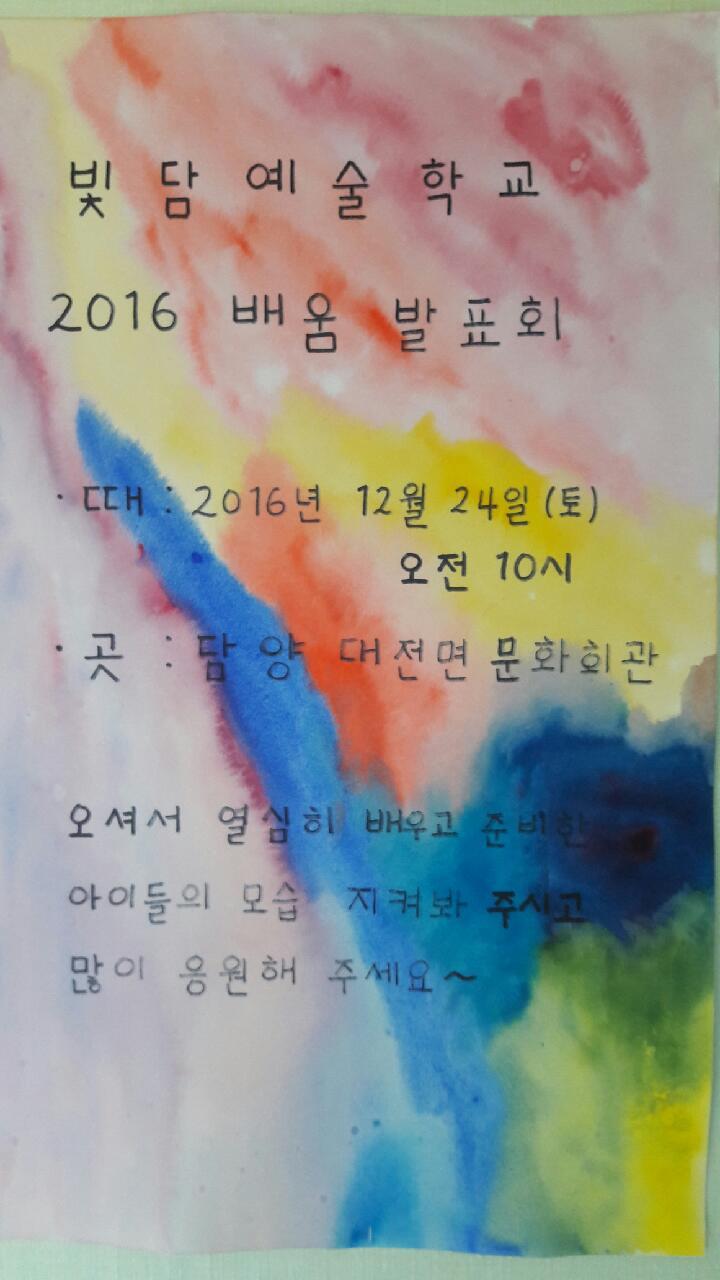 빛담예술학교
2016 배움 발표회
· 때 : 2016년 12월 24일(토)
오전 10시
· 곳 : 담양 대전면 문화회관
오셔서 열심히 배우고 준비한
아이들의 모습 지켜봐 주시고
많이 응원해 주세요~